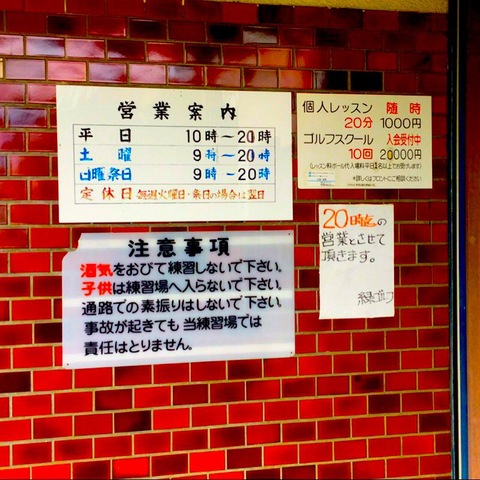 営業案内
平日 10時～20時
土曜 9時～20時
日曜祭日 9時～20時
定休日 毎週火曜日・祭日の場合は翌日
個人レッスン 随時
20分 1000円
ゴルフスクール 入会受付中
10回 20000円
※詳しくはフロントにご相談ください
20時迄の
営業とさせて
頂きます。
緑ゴルフ
注意事項
酒気をおびて練習しないで下さい。
子供は練習場へ入らないで下さい。
通路での素振りはしないで下さい
事故が起きても当練習場では
責任はとりません。